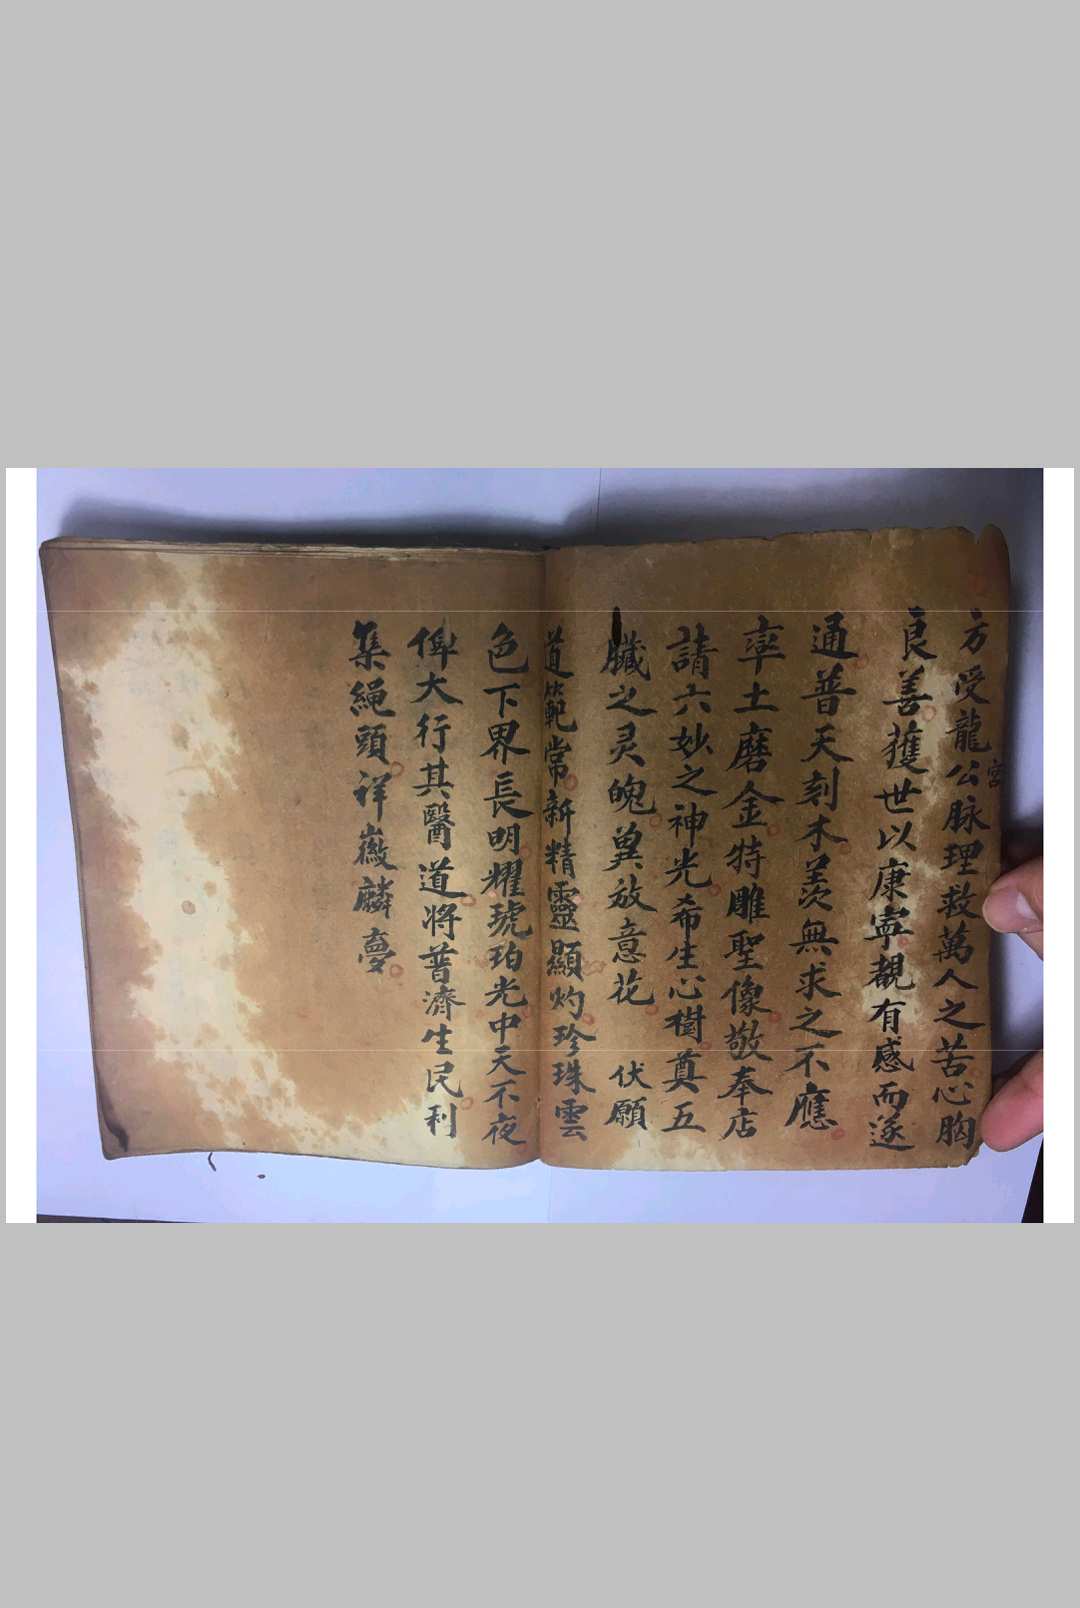 方受龍公脉理救萬人之苦心胸
宮
良善獲世以康寧覩有感而遂
通普天刻木羨無求之不應
率土磨金特雕聖像敬奉店
請六妙之神光希生心樹奠五
臟之灵魄兾放意花 伏願
道範常新精靈顯灼珍珠雲
色下界長明耀琥珀光中天不夜
俾大行其醫道將普濟生民利
集绳頭祥徵麟夢